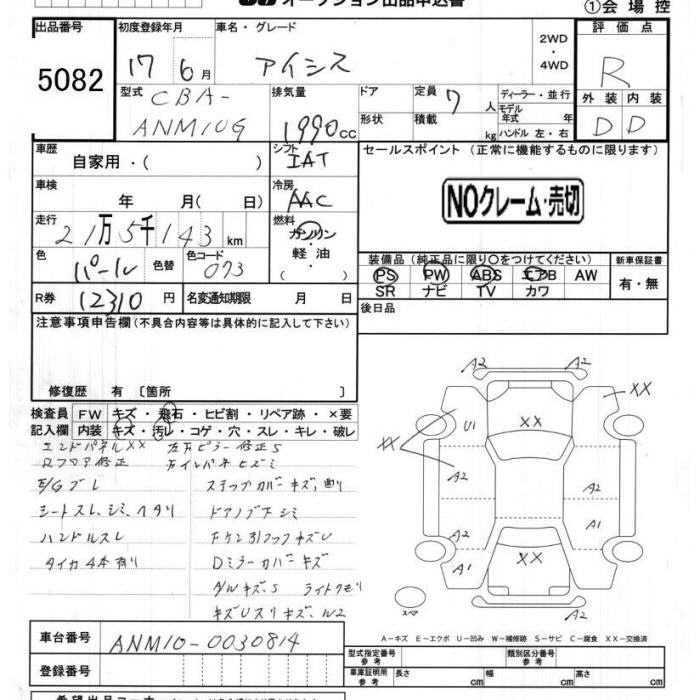 オークション出品申込書
①会場控
出品番号
5082
初度登録年月
17 6月
車名・グレード
アイシス
2WD
・
4WD
評価点
R
外装 内装
D D
型式
CBA-
ANM10G
排気量
1990cc
ドア
形状
定員 7人
積載 kg
ディーラー・並行
モデル
年式 年
ハンドル 左・右
車歴
自家用・( )
シフト
IAT
セールスポイント (正常に機能するものに限ります)
NOクレーム・売切
車検
年 月( 日)
冷房
AAC
走行
21万5千143km
燃料
ガソリン
軽油
( ・ )
色
パール
色替
色コード
073
装備品(純正品に限り○をつけてください)
PS PW ABS エアB AW
SR ナビ TV カワ
新車保証書
有・無
R券 12310円
名変通知期限 月 日
後日品
注意事項申告欄(不具合内容等は具体的に記入して下さい)
修復歴 有〔箇所 〕
検査員
記入欄
FW キズ・飛石・ヒビ割・リペア跡・×要
内装 キズ・汚レ・コゲ・穴・スレ・キレ・破レ
エンドパネルXX 左右ピラー修正S
Rフロア修正 左インパネヒズミ
E/Gブレ ステップカバーキズ,
シートスレ、シミ、ヘタリ ドアノブ下シミ
ハンドルスレ Fケン引フックキズU
タイカ4本有り Dミラーカバーキズ
A/Wキズ、S ライトクモリ
キズUスリキズ、W2
A2
XX
XX
U1
XX
A2
A2
A2
A1
A2
XX
A1
A2
スペア
A-キズ E-エクボ U-凹み W-補修跡 S-サビ C-腐食 XX-交換済
車台番号 ANM10-0030814
登録番号
型式指定番号
参考
類別区分番号
参考
車庫証明用
参考
長さ cm 幅 cm 高さ cm
希望出品コーナー